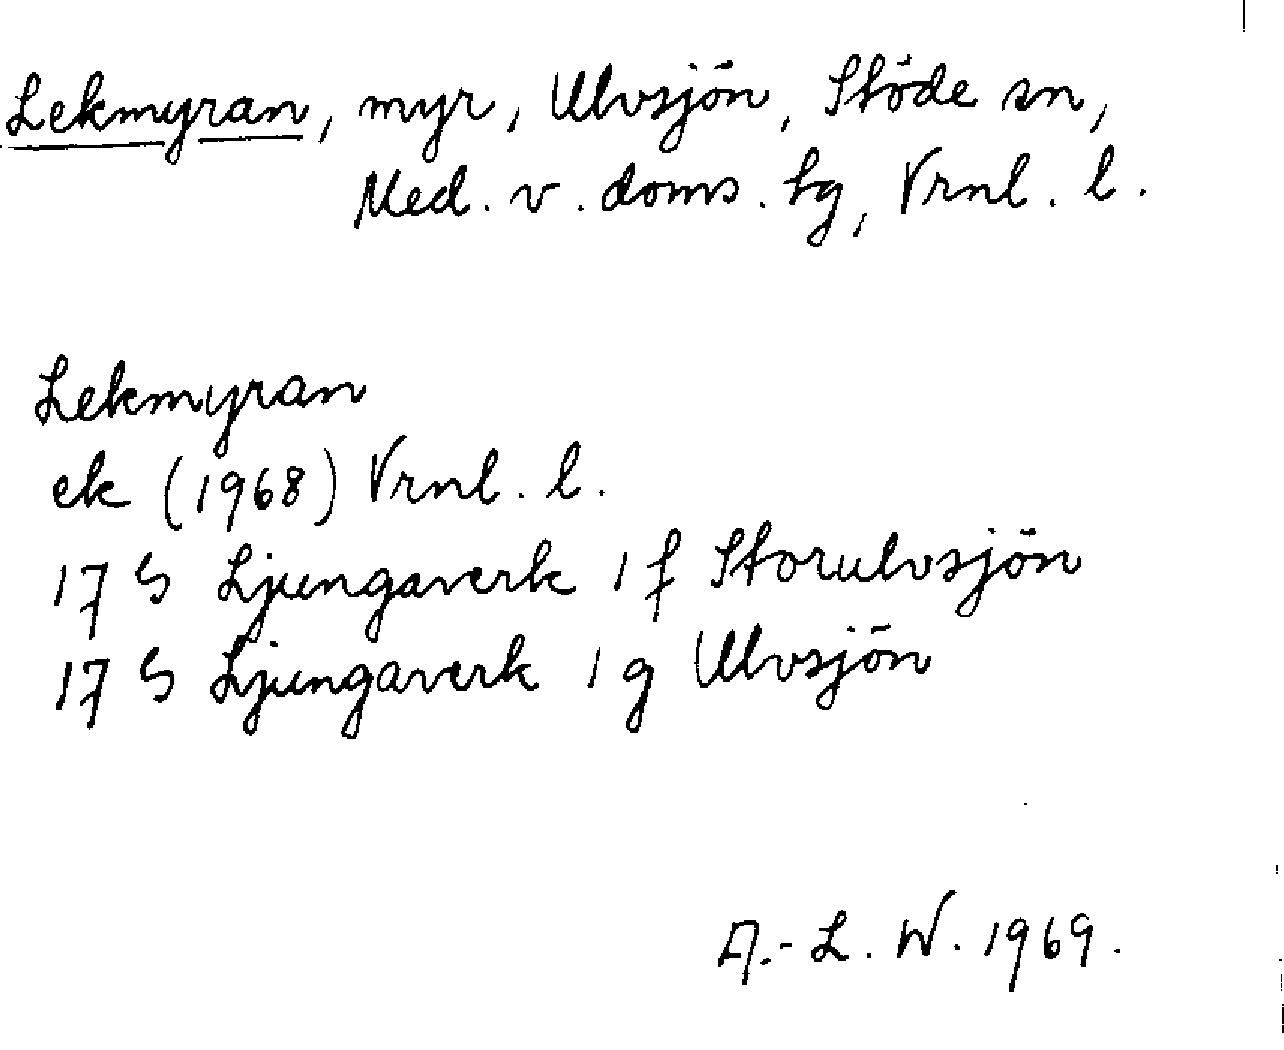 Lekmyran, myr, Ulvsjön, Stöde sn,
Med. v. doms. hg, Vrnl. l.
Lekmyran
ek (1968) Vrnl. l.
17 G Ljungaverk 1 f Storulvsjön
17 G Ljungaverk 1 g Ulvsjön
A.-L. W. 1969.